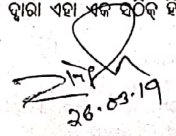 ଦ୍ୱାରା ଏହା ଏକ ସଠିକ୍
26.03.19